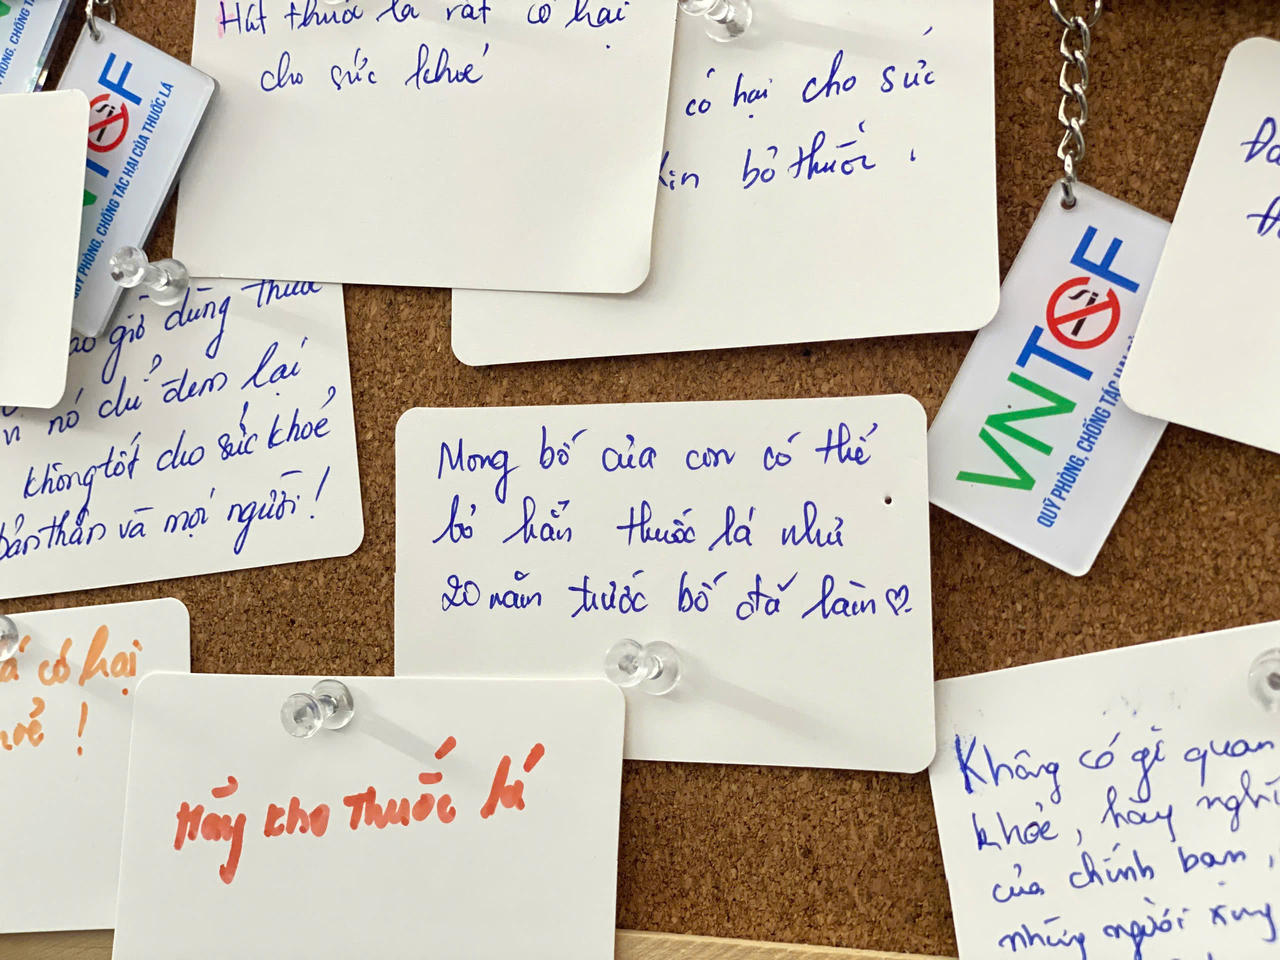 Hút thuốc lá rất có hại
cho sức khoẻ
có hại cho sức
bỏ thuốc
VNTOF
QUỸ PHÒNG, CHỐNG TÁC HẠI CỦA THUỐC LÁ
giờ dùng thuốc
nó chỉ đem lại
không tốt cho sức khoẻ
bản thân và mọi người!
Mong bố của con có thể
bỏ hẳn thuốc lá như
20 năm trước bố đã làm ♡.
VNTOF
QUỸ PHÒNG, CHỐNG TÁC HẠI
có hại
!
Hãy kho thuốc lá
Không có gì quan
khoẻ, hãy nghĩ
của chính bạn,
những người xung